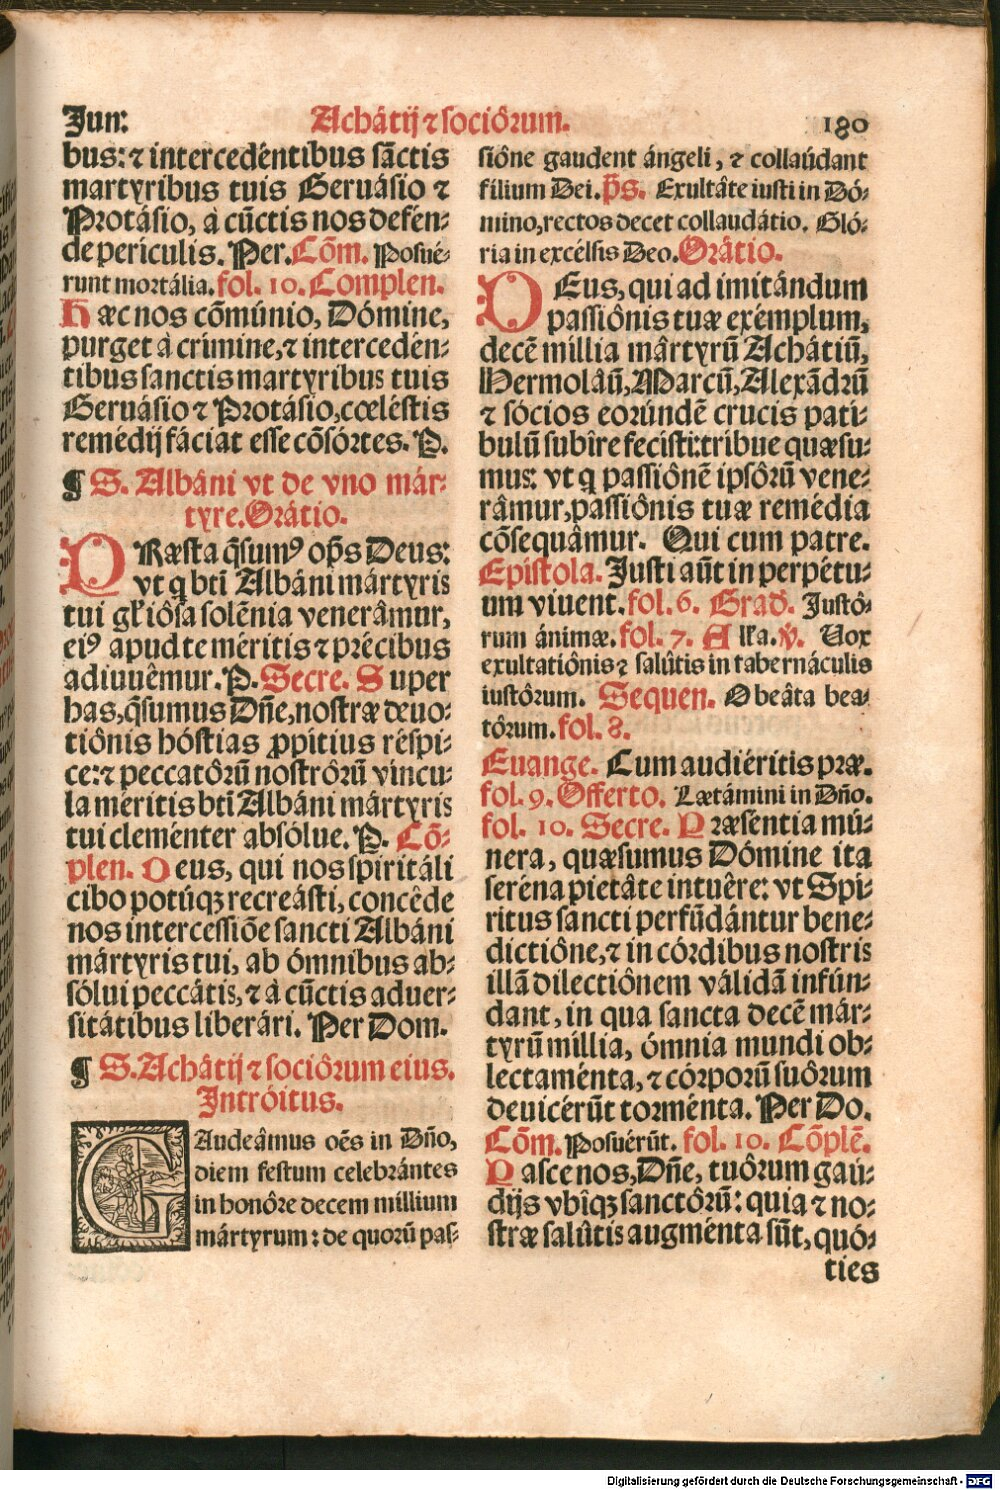 Jun:
Achâtij ⁊ sociôrum.
180
bus: ⁊ intercedéntibus sãctis
martyribus tuis Geruásio ⁊
Protásio, à cũctis nos defén-
de perículis. Per. Cõm. Posué-
runt mortália. fol. 10. Complen.
Hæc nos cõmúnio, Dómine,
purget à crímine, ⁊ intercedén-
tibus sanctis martyribus tuis
Geruásio ⁊ Protásio, cœléstis
remédij fáciat esse cõsórtes. P.
¶ S. Albáni vt de vno már-
tyre. Orátio.
PRæsta q̃sumꝰ op̃s Deus:
vt q btĩ Albáni mártyris
tui gl̃iôsa solẽnia venerâmur,
eiꝰ apud te méritis ⁊ précibus
adiuuêmur. P. Secre. Super
has, q̃sumus Dñe, nostræ deuo-
tiônis hóstias ꝓpítius réspi-
ce: ⁊ peccatôrũ nostrôrũ víncu-
la méritis btĩ Albáni mártyris
tui cleménter absólue. P. Cõ-
plen. Deus, qui nos spiritáli
cibo potúqꝫ recreásti, concêde
nos intercessiõe sancti Albáni
mártyris tui, ab ómnibus ab-
sólui peccátis, ⁊ à cũctis aduer-
sitátibus liberári. Per Dom.
¶ S. Achâtij ⁊ sociôrum eius.
Intróitus.
GAudeâmus oẽs in Dño,
diem festum celebrántes
in honôre decem millium
mártyrum: de quorũ pas-
siône gaudent ángeli, ⁊ collaúdant
fílium Dei. p̃s. Exultâte iusti in Dó-
mino, rectos decet collaudátio. Gló-
ria in excélsis Deo. Orâtio.
DEus, qui ad imitándum
passiônis tuæ exémplum,
decẽ míllia mârtyrũ Achátiũ,
Hermolâũ, Marcũ, Alexãdrũ
⁊ sócios eorúndẽ crucis patí-
bulũ subîre fecísti: tríbue quæsu-
mus: vt q passiônẽ ipsôrũ vene-
râmur, passiônis tuæ remédia
cõsequâmur. Qui cum patre.
Epistola. Justi aũt in perpétu-
um viuent. fol. 6. Grad. Justô-
rum ánimæ. fol. 7. Alla. ℣. Vox
exultatiônis ⁊ salûtis in tabernáculis
iustôrum. Sequen. O beâta bea-
tôrum. fol. 8.
Euange. Cum audiéritis præ.
fol. 9. Offerto. Lætámini in Dño.
fol. 10. Secre. Præséntia mú-
nera, quæsumus Dómine ita
seréna pietâte intuêre: vt Spí-
ritus sancti perfũdántur bene-
dictiône, ⁊ in córdibus nostris
illã dilectiônem válidã infún-
dant, in qua sancta decẽ már-
tyrũ míllia, ómnia mundi ob-
lectaménta, ⁊ córporũ suôrum
deuicérũt torménta. Per Do.
Cõm. Posuérũt. fol. 10. Cõplẽ.
Pasce nos, Dñe, tuôrum gaú-
dijs vbîqꝫ sanctôrũ: quia ⁊ no-
stræ salûtis augménta sũt, quó-
ties
Digitalisierung gefördert durch die Deutsche Forschungsgemeinschaft - DFG